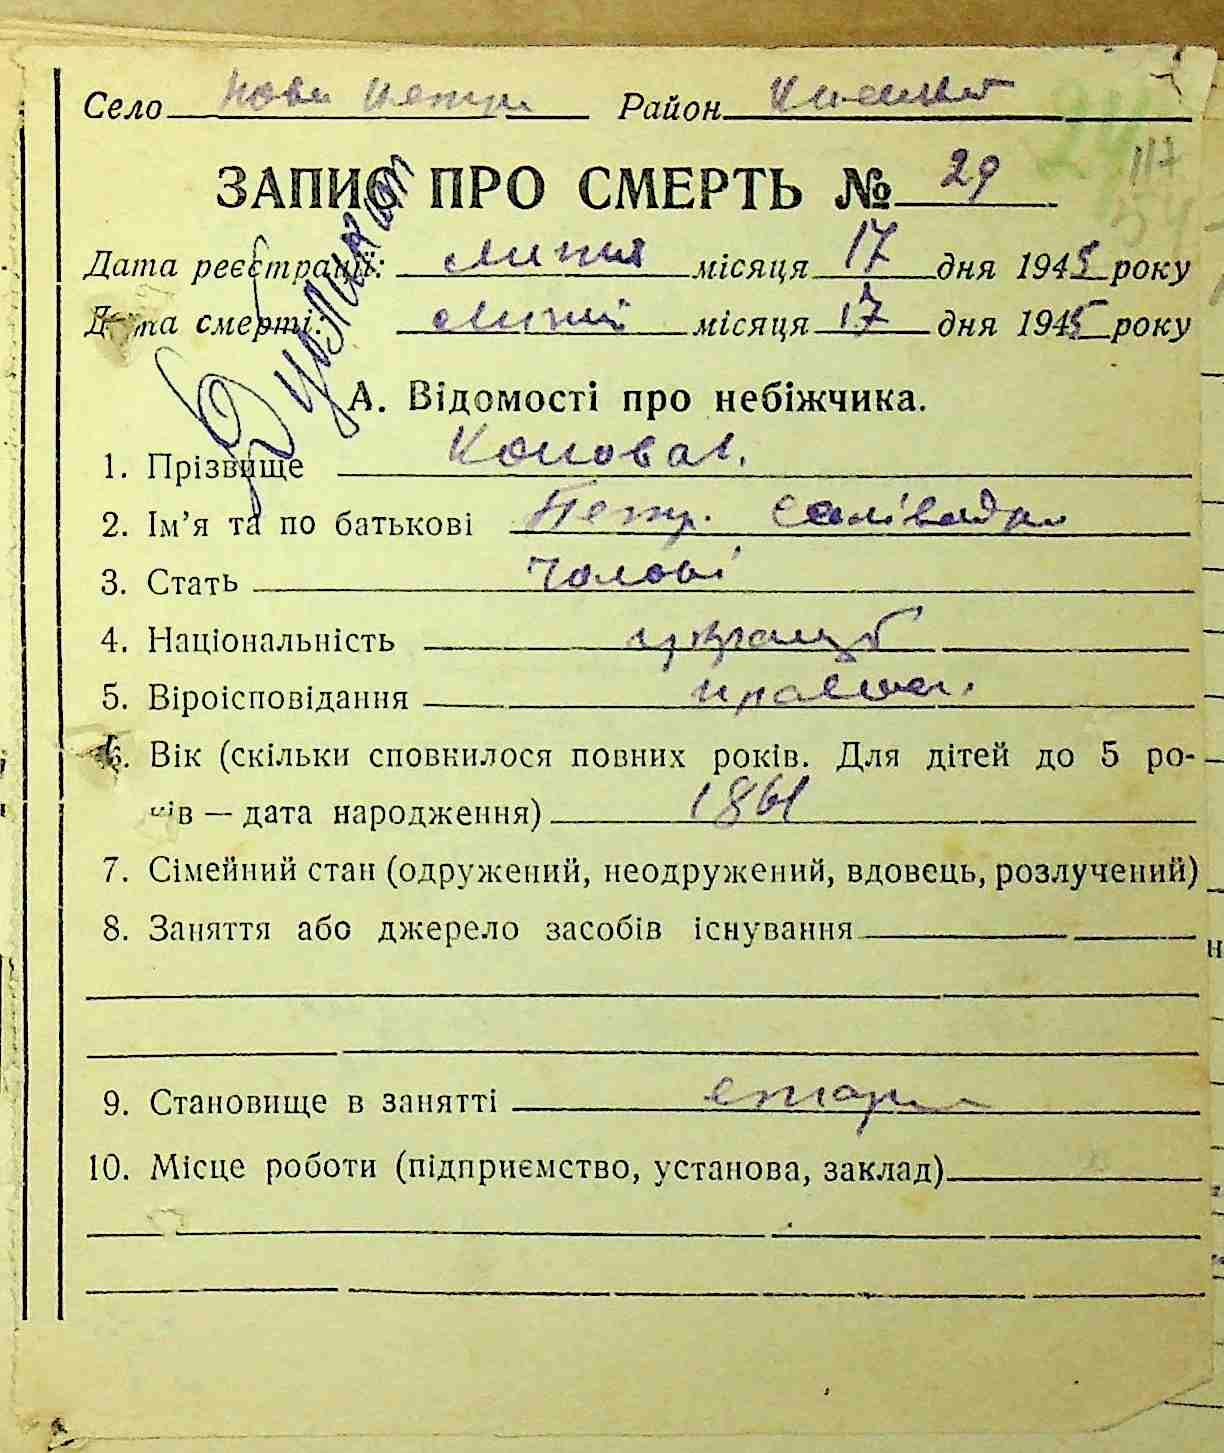 Село Нови Петри Район Киевский
ЗАПИС ПРО СМЕРТЬ № 29
117
Дубликат
Дата реєстрації: липня місяця 17 дня 1945 року
Дата смерті: липня місяця 17 дня 1945 року
А. Відомості про небіжчика.
1. Прізвище Коновал.
2. Ім’я та по батькові Петр.
3. Стать чолові
4. Національність
5. Віроісповідання
6. Вік (скільки сповнилося повних років. Для дітей до 5 ро-
ків — дата народження) 1861
7. Сімейний стан (одружений, неодружений, вдовець, розлучений)
8. Заняття або джерело засобів існування
9. Становище в занятті
10. Місце роботи (підприємство, установа, заклад)